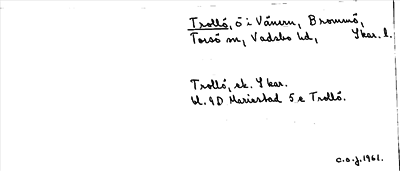 Trollö, ö i Vänern, Brommö,
Torsö sn, Vadsbo hd, Skar. l.
Trollö, ek. Skar.
bl. 9D Mariestad 5 e Trollö.
C.O.J. 1961.